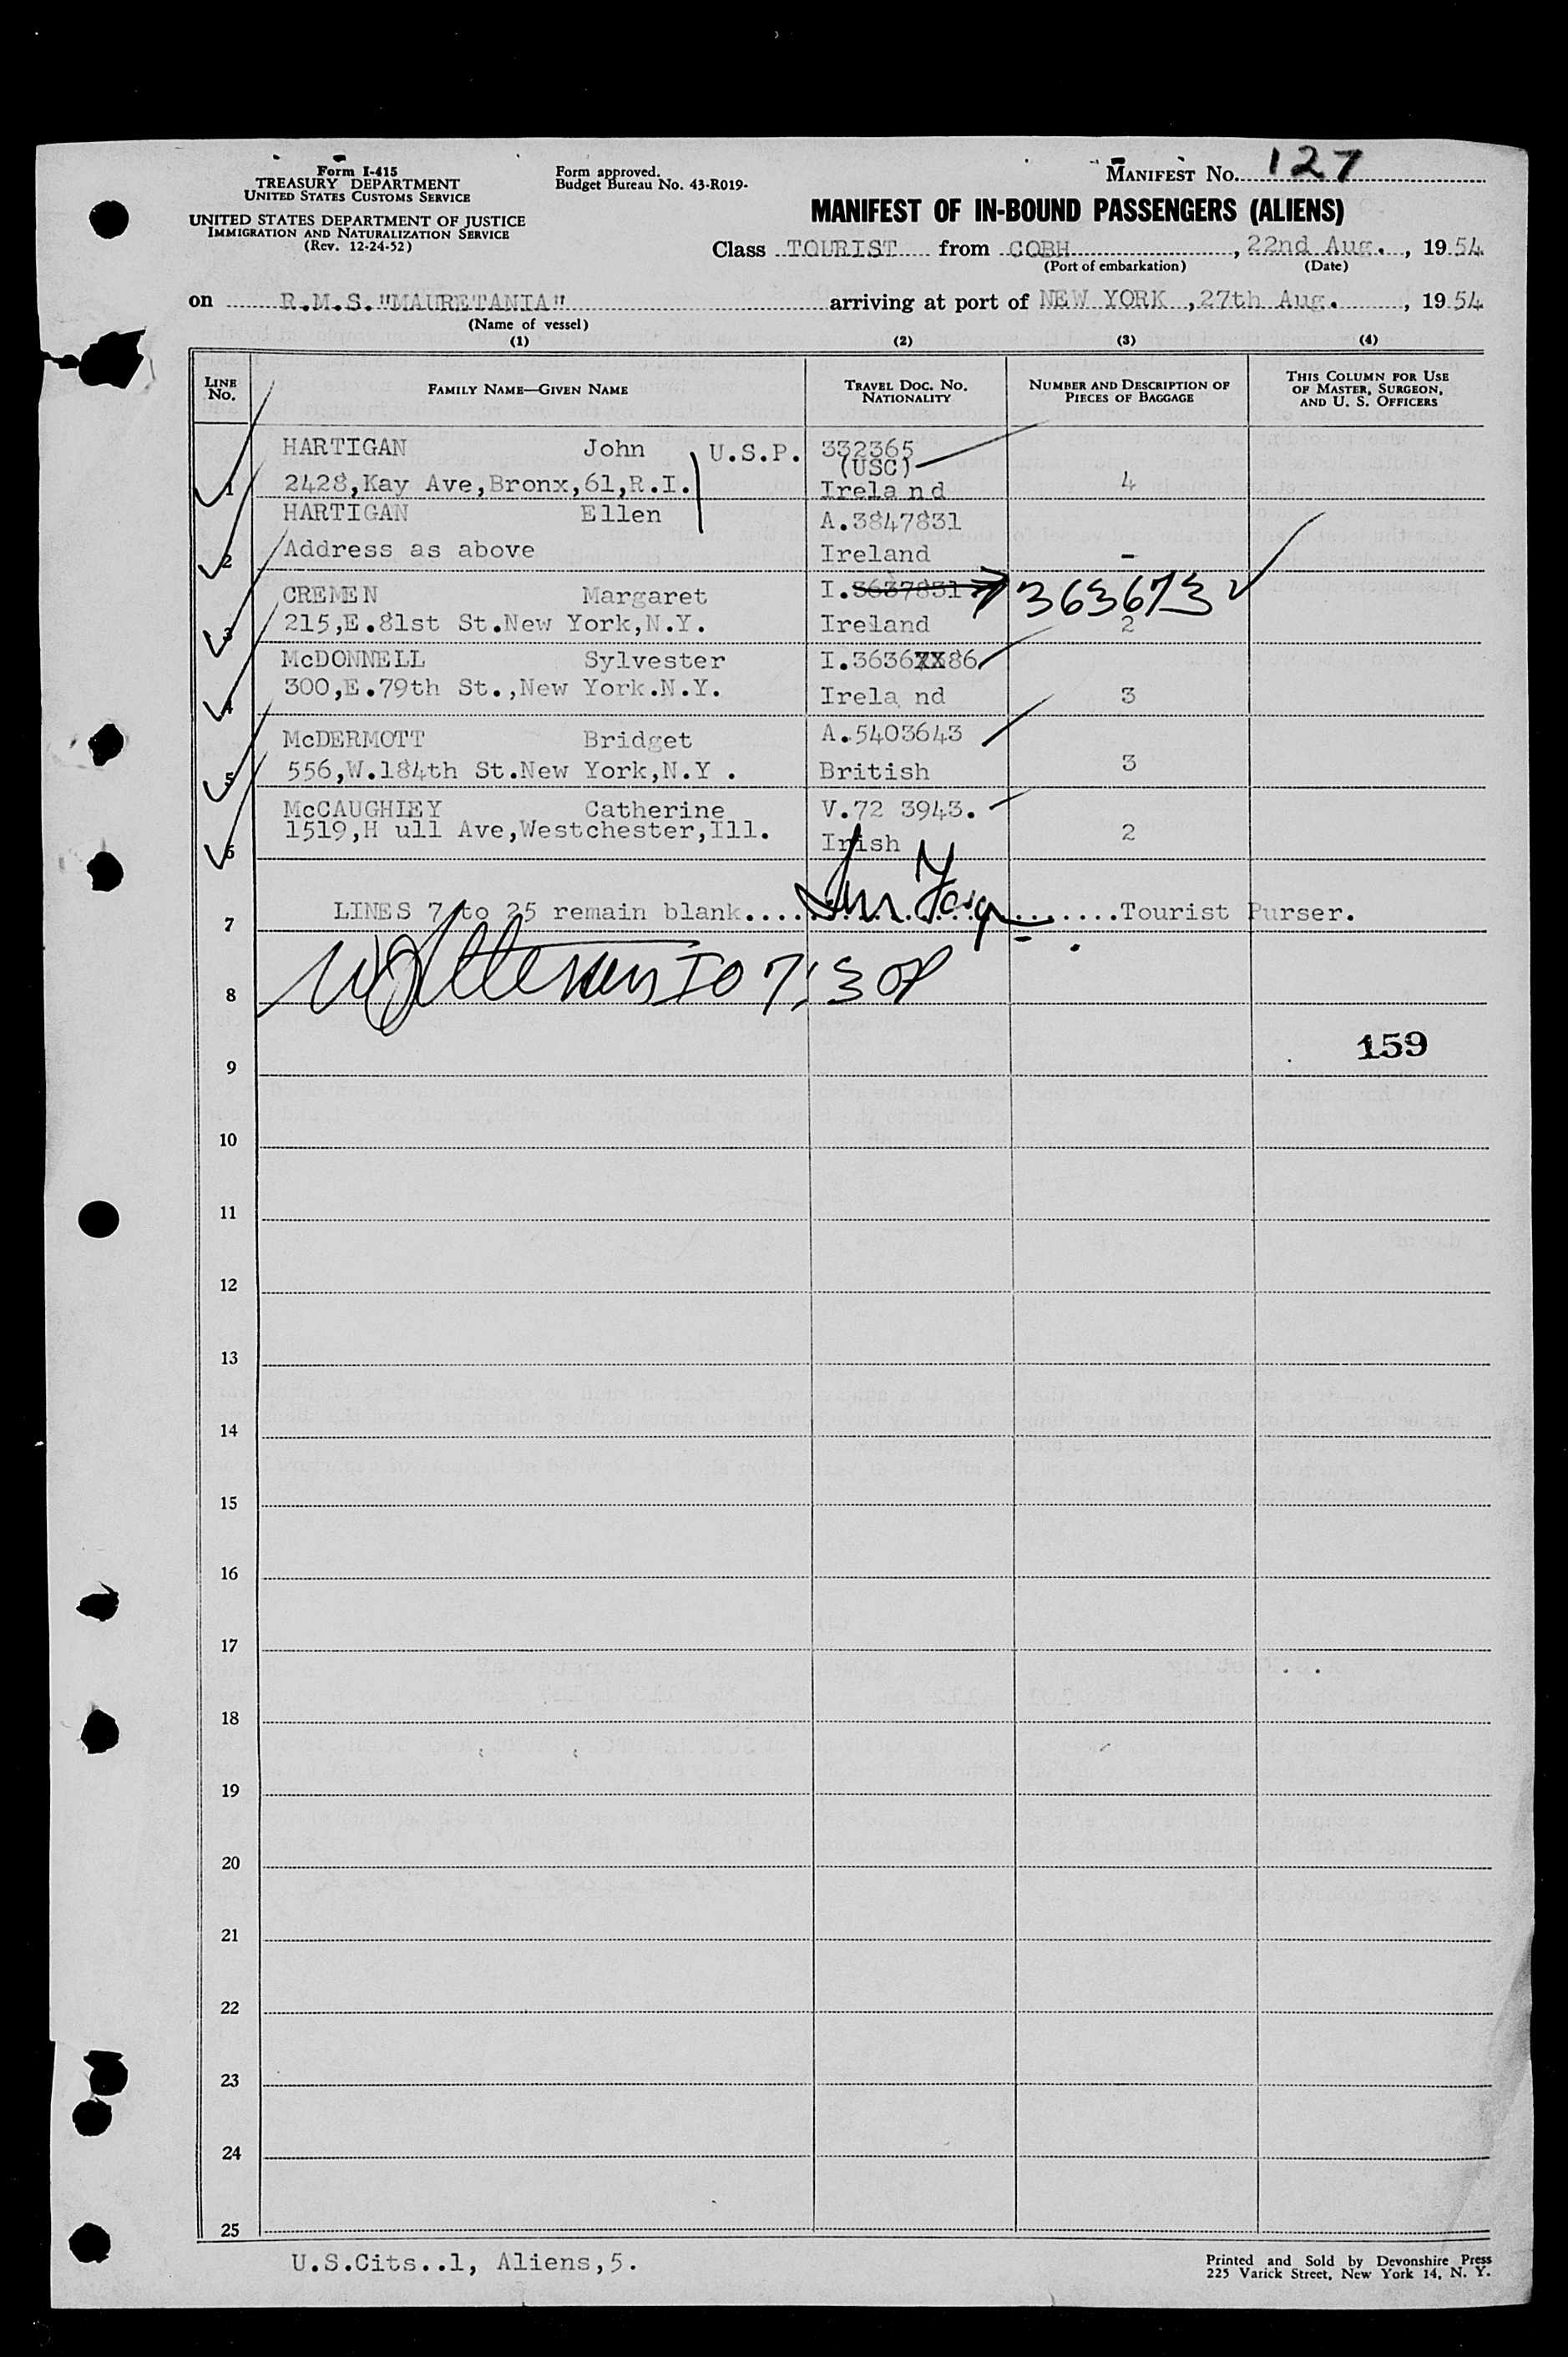 Form I-415
TREASURY DEPARTMENT
UNITED STATES CUSTOMS SERVICE
UNITED STATES DEPARTMENT OF JUSTICE
IMMIGRATION AND NATURALIZATION SERVICE
(Rev. 12-24-52)
Form approved.
Budget Bureau No. 43-R019-
MANIFEST No. 127
MANIFEST OF IN-BOUND PASSENGERS (ALIENS)
Class TOURIST from COBH, 22nd Aug., 1954
(Port of embarkation) (Date)
on R.M.S."MAURETANIA" arriving at port of NEW YORK, 27th Aug., 1954
(Name of vessel)
(1) (2) (3) (4)
LINE No. FAMILY NAME—GIVEN NAME TRAVEL DOC. NO. NATIONALITY NUMBER AND DESCRIPTION OF PIECES OF BAGGAGE THIS COLUMN FOR USE OF MASTER, SURGEON, AND U. S. OFFICERS
HARTIGAN John U.S.P. 332365
(USC)
1 2428,Kay Ave,Bronx,61,R.I. Irela nd 4
HARTIGAN Ellen A.3847831
2 Address as above Ireland -
CREMEN Margaret I.3637831 363673
3 215,E.81st St.New York,N.Y. Ireland 2
McDONNELL Sylvester I.36367XX86
4 300,E.79th St.,New York.N.Y. Irela nd 3
McDERMOTT Bridget A.5403643
5 556,W.184th St.New York,N.Y . British 3
McCAUGHIEY Catherine V.72 3943.
6 1519,H ull Ave,Westchester,Ill. Irish 2
7 LINES 7 to 25 remain blank.... ....Tourist Purser.
8 IO 7:30P
159
9
10
11
12
13
14
15
16
17
18
19
20
21
22
23
24
25
U.S.Cits..1, Aliens,5.
Printed and Sold by Devonshire Press
225 Varick Street, New York 14, N. Y.